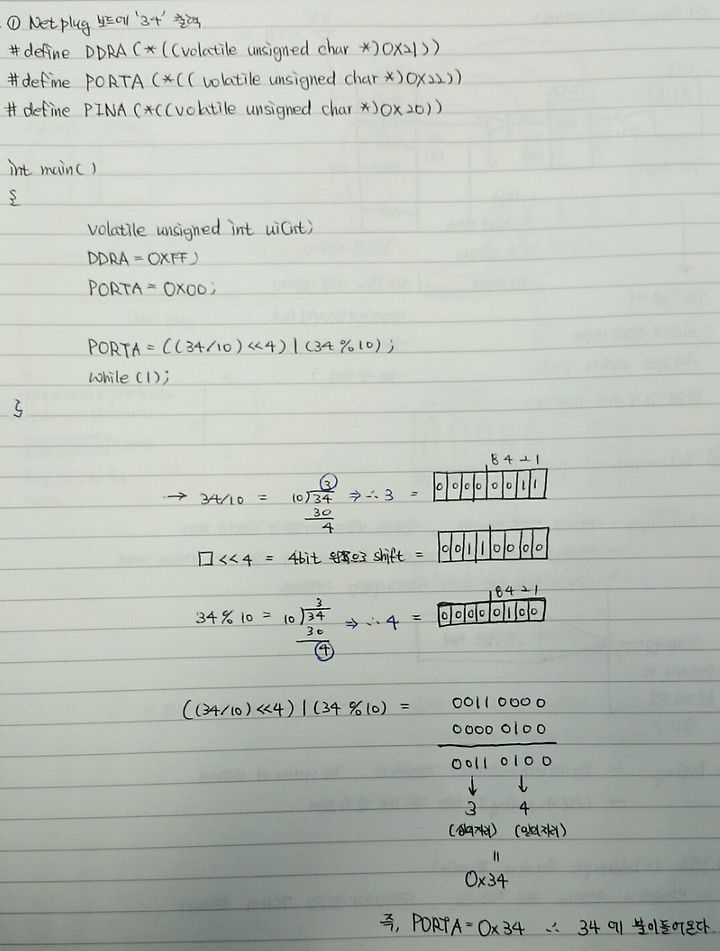 ① Netplug 보드에 '34' 출력
#define DDRA (*((volatile unsigned char *)0X21))
#define PORTA (*(( volatile unsigned char *)0X22))
#define PINA (*((volatile unsigned char *)0X20))
int main( )
{
volatile unsigned int uiCnt;
DDRA = 0XFF;
PORTA = 0X00;
PORTA = ((34/10) <<4) | (34 % 10);
while (1);
}
8 4 2 1
→ 34/10 = 10)34 3 30 4 ⇒ ∴ 3 = 0 0 0 0 0 0 1 1
□ <<4 = 4bit 왼쪽으로 shift = 0 0 1 1 0 0 0 0
8 4 2 1
34 % 10 = 10)34 3 30 4 ⇒ ∴ 4 = 0 0 0 0 0 1 0 0
((34/10) <<4) | (34 % 10) = 0011 0000
0000 0100
0011 0100
↓ ↓
3 4
(십의자리) (일의자리)
=
0x34
즉, PORTA = 0x34 ∴ 34 에 불이들어온다.